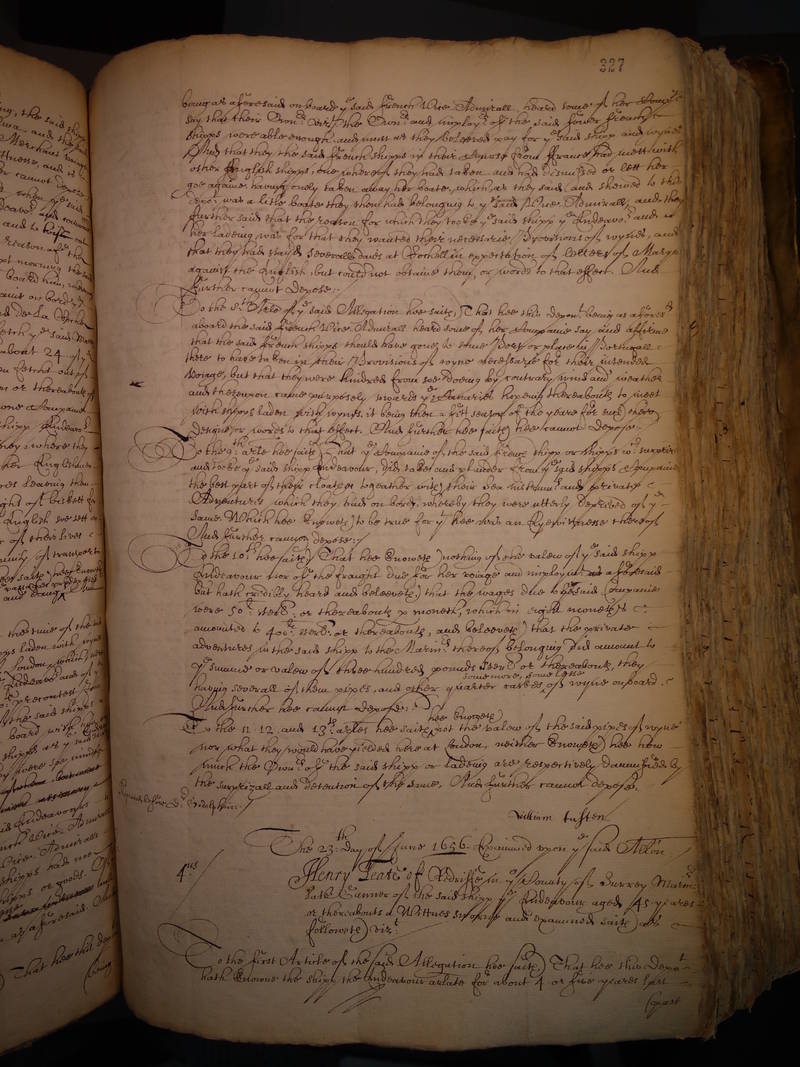 327
being as aforesaid on board ye said ffrench Vice Admirall, heard some of her Compa
say that their Owners the Owners and imployers of the said fower ffrench
shipps, were able enough, and must as they beleeved pay for ye said shipp and wynes
And that they the said ffrench shipps in their from ffrance had mett with
other English shipps, one whereof they had taken and had dismissed or lett her
goe againe having onely taken away her boate, which as they said (and shewed to this
depont was a litle boate they then had belonging to ye said Vice Admirall, and they
further said that the reason for which they tooke ye said shipp ye Endeavour and
her ladeing was for that they wanted their necessarie Provisions of wynes, and
that they had stayed severall dayes at Rochell in expectation of letters of Marque
against the English, but could not obteine them, or words to that effect. And
further cannot depose:/
To the 8th Article of ye said Allegation hee saith, That hee this deponent being as aforesd
aboard the said ffrench Vice Admirall heard some of her Companie say and affirme
that the said ffrench shipps should have gone to some Port or place in Portugall
there to have taken in their Provisions of wyne necessarie for their intended
voiage, but that they were hindred from soe doeing by contrary wind and weather
and thereupon came purposely towards ye Canaries hopeing thereabouts to meet
with shipps laden with wynes, it being then a fitt season of the yeare for such their
designe, or words to that effect. And further hee saith hee cannot depose./
To the 9th: article hee saith, That ye Companie of the said ffrench shipp or shipps wch surprized
and tooke ye said shipp Endeavour, did take and plunder from ye said shipps Companie
the best part of their cloathes togeather with their sea instruments and private
Adventures which they had on board, whereby they were utterly deprived of ye
same. Which hee knoweth to be true for yt hee was an Eyewitnesse thereof
And further cannot depose:/
To the 10th: hee saith, That hee knoweth nothing of the valew of ye said shipp
Endeavour nor of the fraight due for her voiage and imployment as aforesaid
but hath credibly heard and beleeveth that the wages due to ye said Companie
were 50li: sterl. or thereabouts p moneth, which in eight moneths
amounteth to 400li: sterl. or thereabouts, and beleeveth that the private
adventures in the said shipp to the Marriners thereof belonging did amount to
ye summe or valew of three hundred pounds sterl or thereabouts, they
some more, some lesse
having severall of them pipes, and other quarter caskes of wyne onboard
And further hee cannot depose:/
hee knoweth
To the 11 12 and 13th: articles hee saith, not the valew of the said pipes of wyne
nor what they would have yeilded here at London, neither knoweth hee how
much the Owners of the said shipp or ladeing are respectively damnified by
the surprizall and detention of the same, And further cannot depose.
William Tusten
The 23th Day of June 1656. Examined upon ye said Allon
4us
Henry Leate of Redriffe in ye County of Surrey Mariner
late Gunner of the said shipp ye Endeavour aged 45 yeares
or thereabouts a Wittnes sworne and examined saith as
followeth vizt
To the first Article of the said Allegation hee saith, That hee this depont
hath knowne the shipp the Endeavour arlate for about 4 or five yeares last